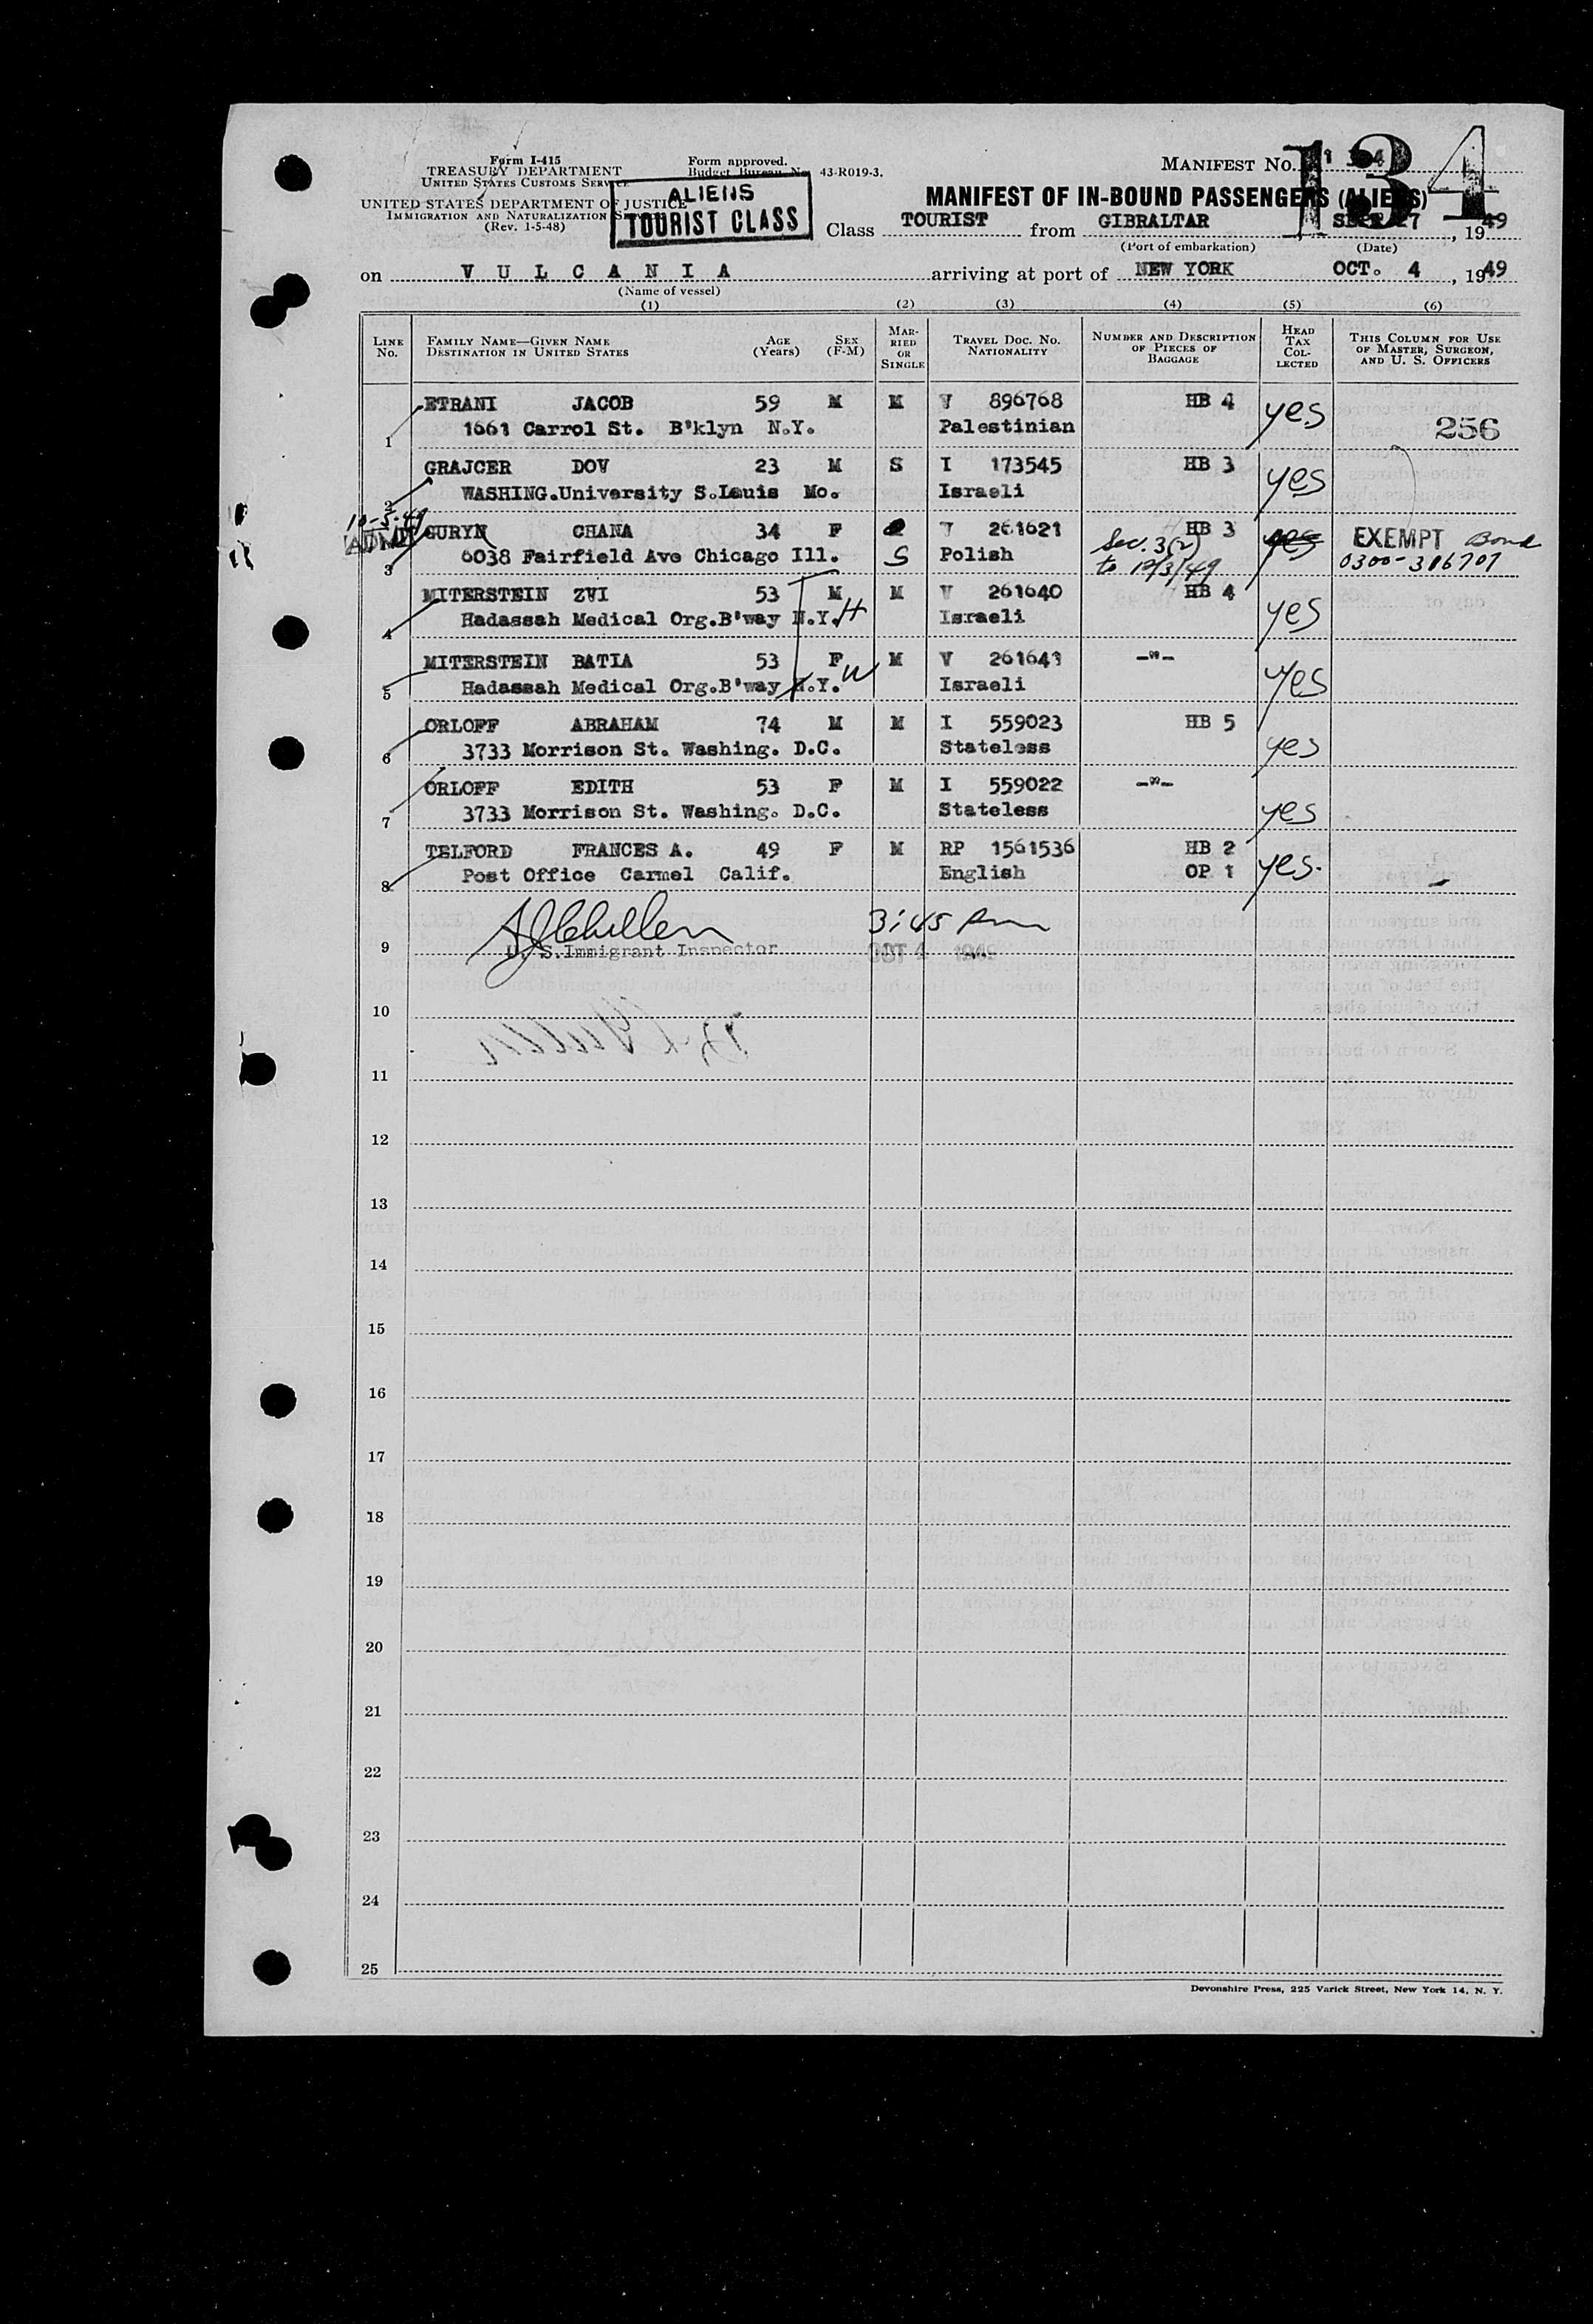 Form I-415
TREASURY DEPARTMENT
UNITED STATES CUSTOMS SERVICE
UNITED STATES DEPARTMENT OF JUSTICE
IMMIGRATION AND NATURALIZATION
(Rev. 1-5-48)
Form approved.
Budget Bureau No. 43-R019-3.
ALIENS
TOURIST CLASS
MANIFEST NO.
134
MANIFEST OF IN-BOUND PASSENGERS (ALIENS)
Class TOURIST from GIBRALTAR SEPT 27, 1949
(Port of embarkation) (Date)
on V U L C A N I A arriving at port of NEW YORK OCT. 4, 1949
(Name of vessel)
(1) (2) (3) (4) (5) (6)
LINE NO. FAMILY NAME—GIVEN NAME DESTINATION IN UNITED STATES AGE (Years) SEX (F-M) MARRIED OR SINGLE TRAVEL DOC. NO. NATIONALITY NUMBER AND DESCRIPTION OF PIECES OF BAGGAGE HEAD TAX COLLECTED THIS COLUMN FOR USE OF MASTER, SURGEON, AND U. S. OFFICERS
1 ETRANI JACOB 59 M M V 896768 HB 4 yes
1661 Carrol St. B'klyn N.Y. Palestinian 256
2 GRAJCER DOV 23 M S I 173545 HB 3 yes
WASHING.University S.Louis Mo. Israeli
10-5-49
ADMD
3 GURYN CHANA 34 F S 261621 HB 3 yes EXEMPT Bond
6038 Fairfield Ave Chicago Ill. Polish Sec. 3(2) to 12/3/49 0300-316701
4 MITERSTEIN ZVI 53 M M V 261640 HB 4 yes
Hadassah Medical Org.B'way N.Y. H Israeli
5 MITERSTEIN BATIA 53 F M V 261641 -"- yes
Hadassah Medical Org.B'way N.Y. W Israeli
6 ORLOFF ABRAHAM 74 M M I 559023 HB 5 yes
3733 Morrison St. Washing. D.C. Stateless
7 ORLOFF EDITH 53 F M I 559022 -"- yes
3733 Morrison St. Washing. D.C. Stateless
8 TELFORD FRANCES A. 49 F M RP 1561536 HB 2 yes.
Post Office Carmel Calif. English OP 1
3:45 Pm
9 U. S. Immigrant Inspector OCT 4 1949
10
11
12
13
14
15
16
17
18
19
20
21
22
23
24
25
Devonshire Press, 225 Varick Street, New York 14, N. Y.